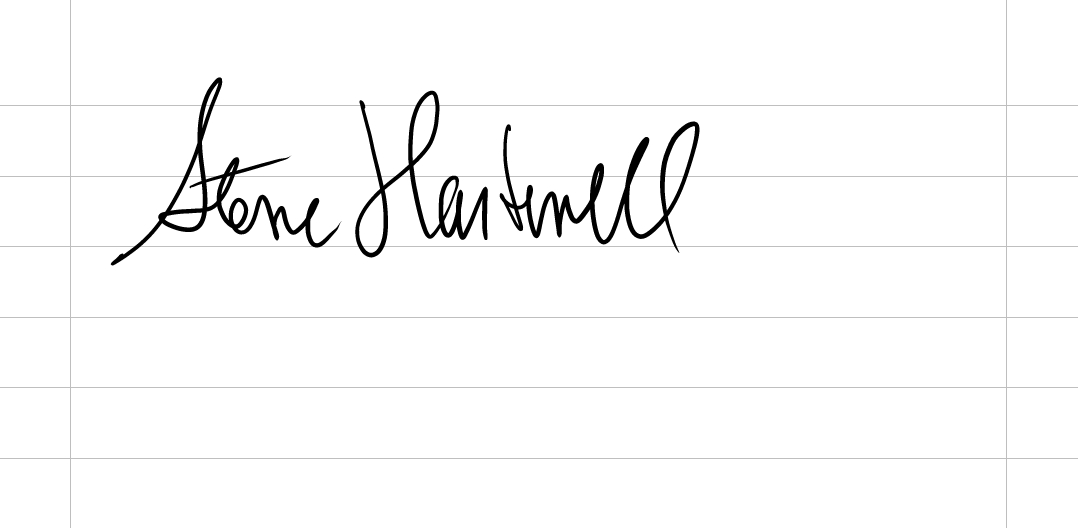 Steve Hartwell